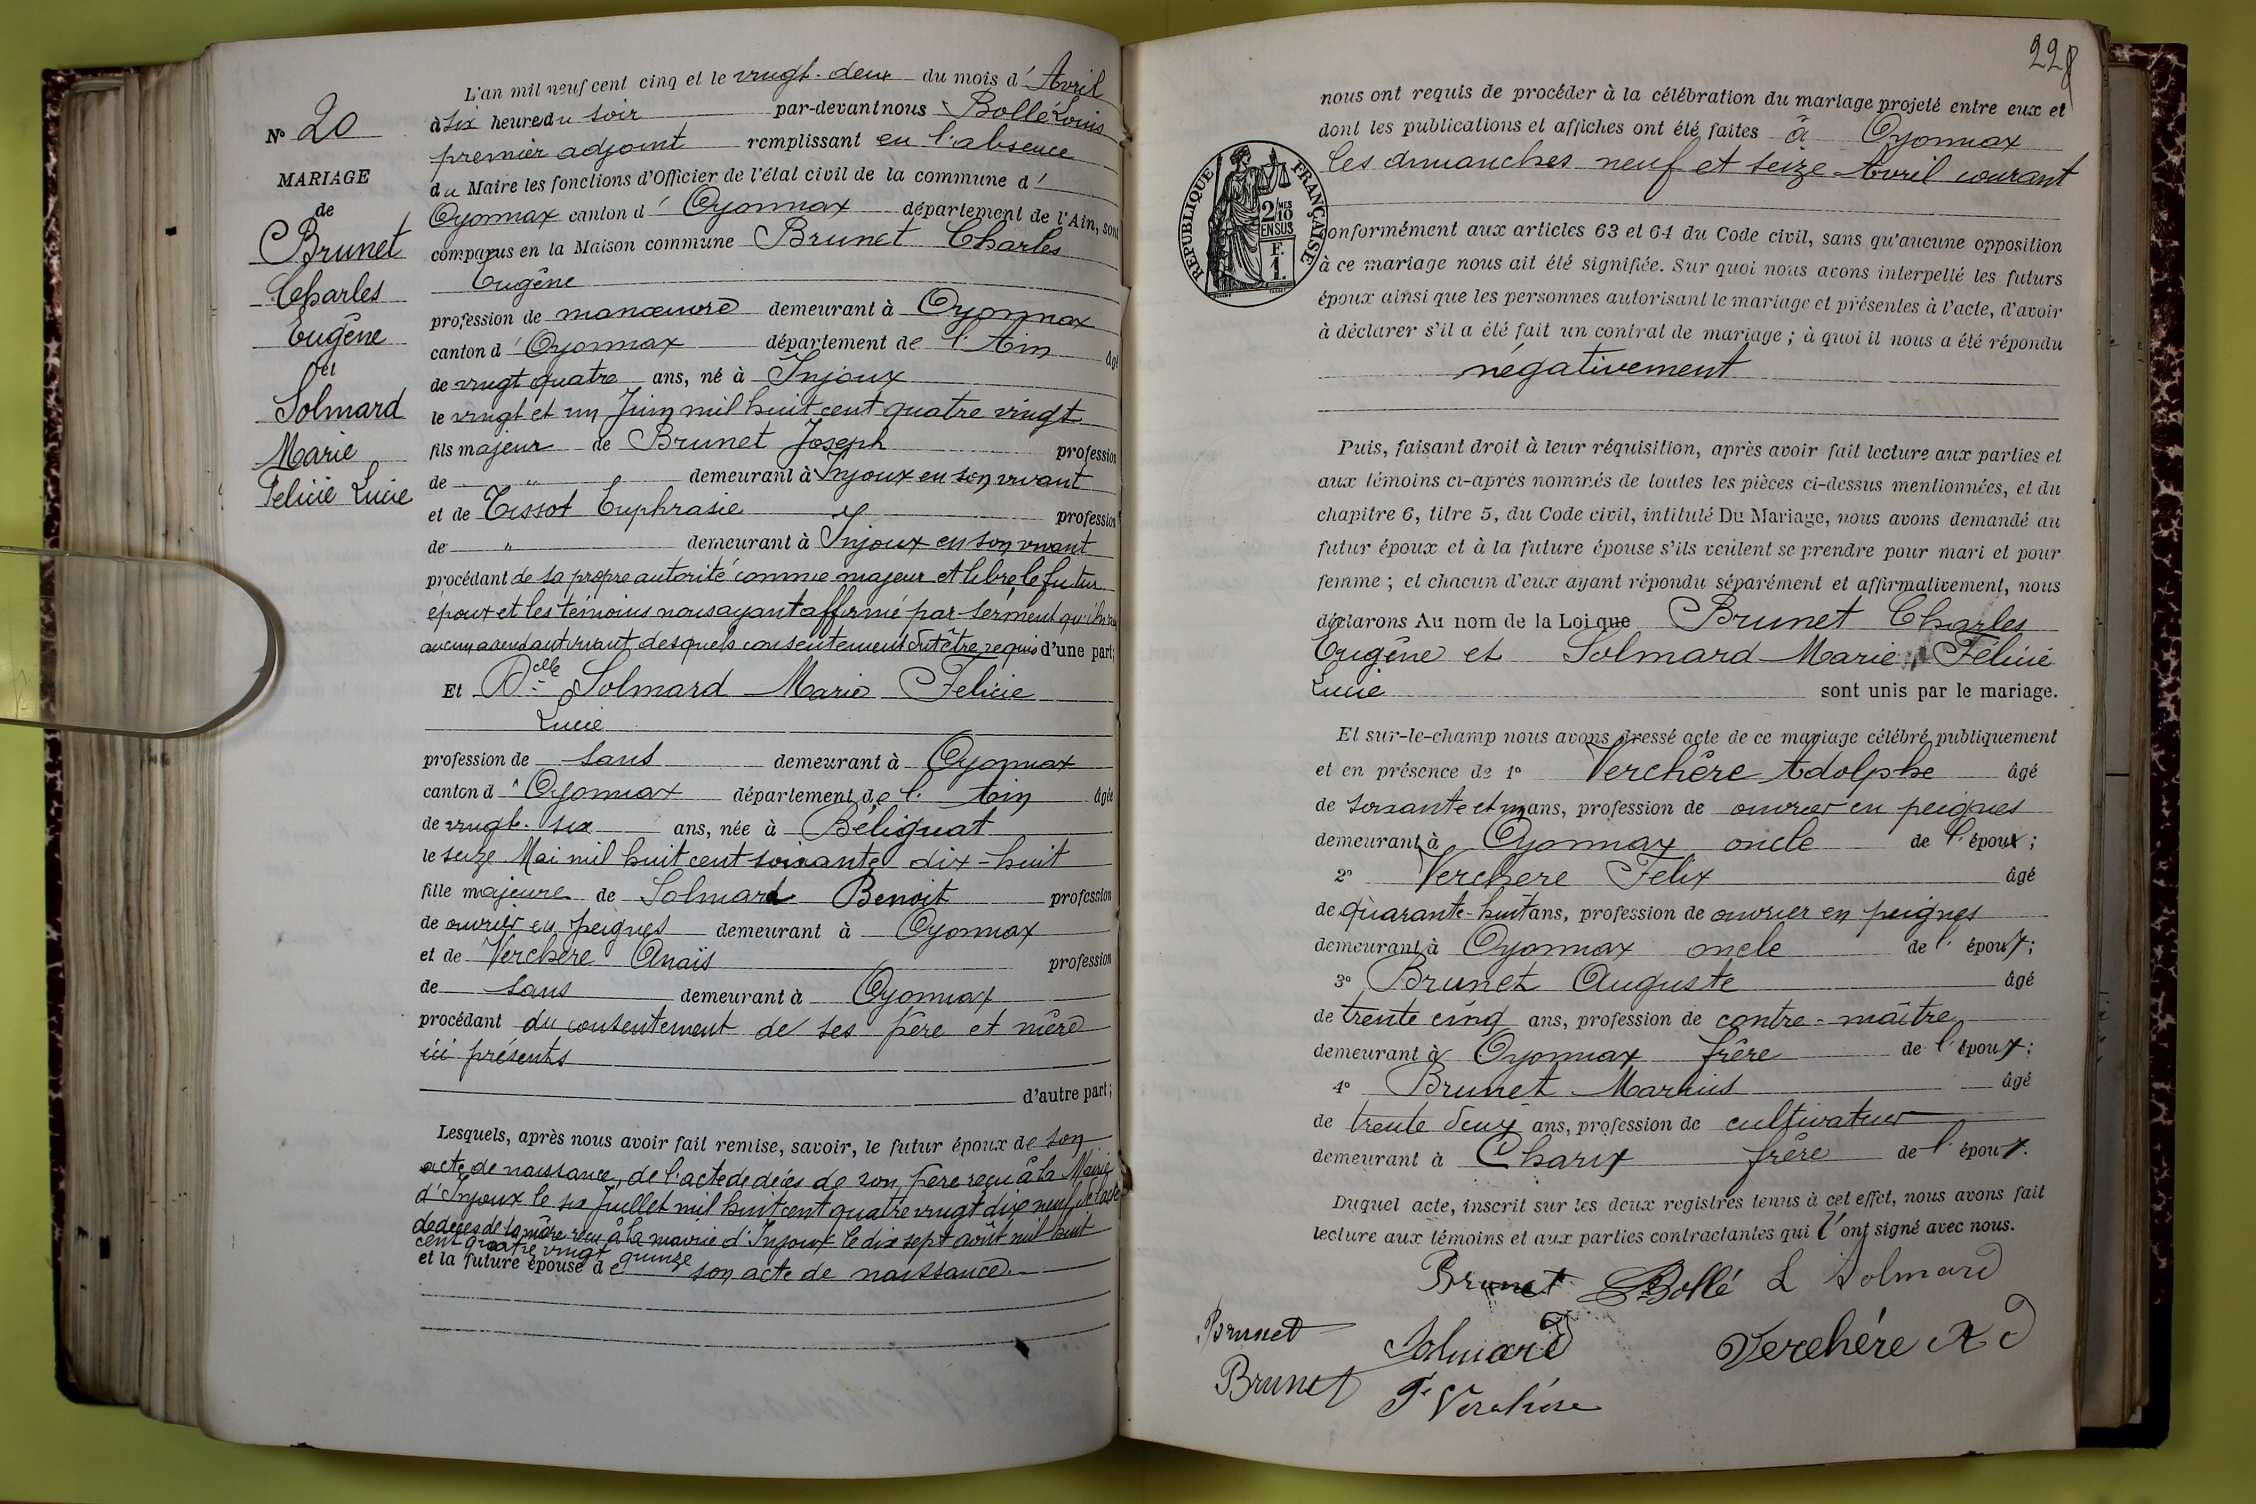 L'an mil neuf cent cinq et le vingt-deux du mois d' Avril
à six heure du soir par-devant nous Bollé Louis
premier adjoint remplissant en l'absence
du Maire les fonctions d'Officier de l'état civil de la commune d'
Oyonnax canton d' Oyonnax département de l'Ain, sont
comparus en la Maison commune Brunet Charles
Eugène
profession de manœuvre demeurant à Oyonnax
canton d' Oyonnax département de l'Ain âgé
de vingt quatre ans, né à Injoux
le vingt et un Juin mil huit cent quatre vingt
fils majeur de Brunet Joseph profession
de " demeurant à Injoux en son vivant
et de Tissot Euphrasie profession
de " demeurant à Injoux en son vivant
procédant de sa propre autorité comme majeur et libre, le futur
époux et les témoins nous ayant affirmé par serment qu'il
aucun ascendant vivant desquels consentement dut être requis d'une part;
Et Delle Solmard Marie Felicie
Lucie
profession de sans demeurant à Oyonnax
canton d' Oyonnax département de l' Ain âgée
de vingt-six ans, née à Bélignat
le seize Mai mil huit cent soixante dix-huit
fille majeure de Solmard Benoit profession
de ouvrier en peignes demeurant à Oyonnax
et de Verchère Anaïs profession
de sans demeurant à Oyonnax
procédant du consentement de ses père et mère
ici présents
d'autre part;
Lesquels, après nous avoir fait remise, savoir, le futur époux de son
acte de naissance, de l'acte de décès de son père reçu à la Mairie
d'Injoux le six Juillet mil huit cent quatre vingt dix neuf, de l'acte
de décès de la mère reçu à la mairie d'Injoux le dix sept août mil huit
cent quatre vingt quinze
et la future épouse de son acte de naissance.
N° 20
MARIAGE
de
Brunet
Charles
Eugène
et
Solmard
Marie
Felicie Lucie
228
nous ont requis de procéder à la célébration du mariage projeté entre eux et
dont les publications et affiches ont été faites à Oyonnax
les dimanches neuf et seize Avril courant
RÉPUBLIQUE FRANÇAISE
2/10 MES
EN SUS
F.
1.
conformément aux articles 63 et 64 du Code civil, sans qu'aucune opposition
à ce mariage nous ait été signifiée. Sur quoi nous avons interpellé les futurs
époux ainsi que les personnes autorisant le mariage et présentes à l'acte, d'avoir
à déclarer s'il a été fait un contrat de mariage ; à quoi il nous a été répondu
négativement
Puis, faisant droit à leur réquisition, après avoir fait lecture aux parties et
aux témoins ci-après nommés de toutes les pièces ci-dessus mentionnées, et du
chapitre 6, titre 5, du Code civil, intitulé Du Mariage, nous avons demandé au
futur époux et à la future épouse s'ils veulent se prendre pour mari et pour
femme ; et chacun d'eux ayant répondu séparément et affirmativement, nous
déclarons Au nom de la Loi que Brunet Charles
Eugène et Solmard Marie Félicie
Lucie sont unis par le mariage.
Et sur-le-champ nous avons dressé acte de ce mariage célébré publiquement
et en présence de 1° Verchère Adolphe âgé
de soixante et un ans, profession de ouvrier en peignes
demeurant à Oyonnax oncle de l' époux ;
2° Verchere Felix âgé
de quarante-huit ans, profession de ouvrier en peignes
demeurant à Oyonnax oncle de l' époux ;
3° Brunet Auguste âgé
de trente cinq ans, profession de contre-maître
demeurant à Oyonnax frère de l' époux ;
4° Brunet Marius âgé
de trente deux ans, profession de cultivateur
demeurant à Charix frère de l' époux.
Duquel acte, inscrit sur les deux registres tenus à cet effet, nous avons fait
lecture aux témoins et aux parties contractantes qui l'ont signé avec nous.
Brunet Bollé L Solmard
Brunet Solmard Verchére A D
Brunet F. Verchère